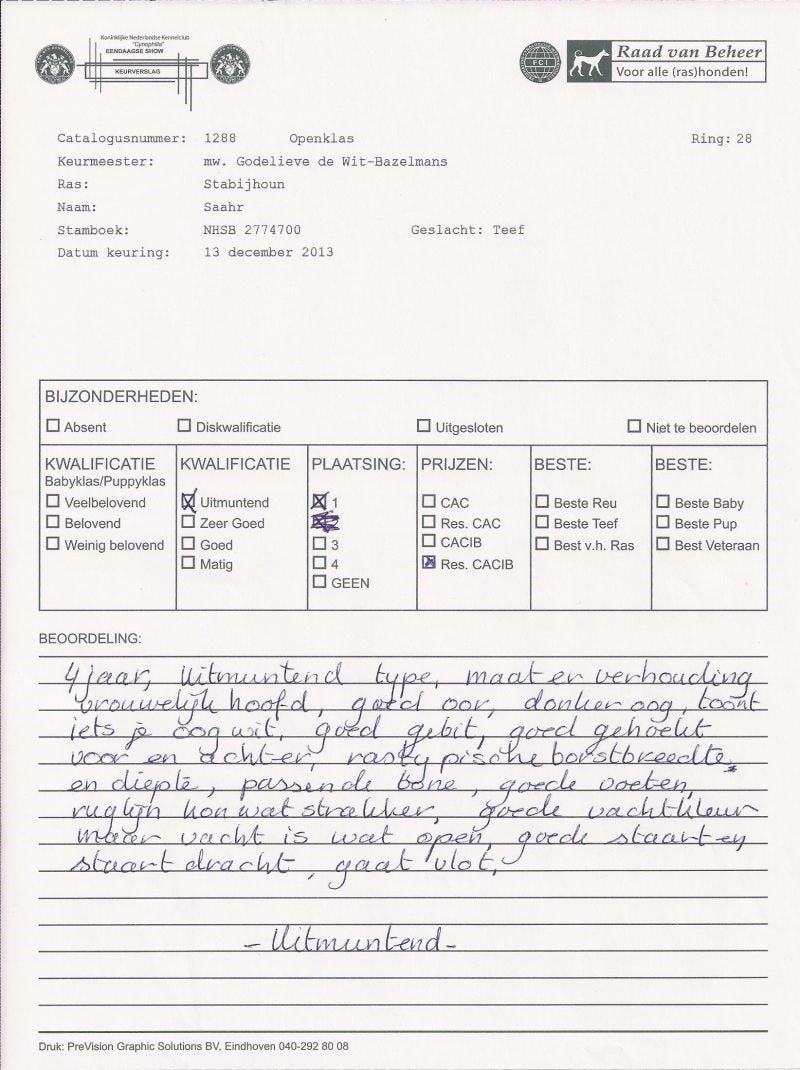 Koninklijke Nederlandse Kennelclub
"Cynophilia"
EENDAAGSE SHOW
KEURVERSLAG
FCI
Raad van Beheer
Voor alle (ras)honden!
Catalogusnummer: 1288 Openklas Ring: 28
Keurmeester: mw. Godelieve de Wit-Bazelmans
Ras: Stabijhoun
Naam: Saahr
Stamboek: NHSB 2774700 Geslacht: Teef
Datum keuring: 13 december 2013
BIJZONDERHEDEN:
Absent Diskwalificatie Uitgesloten Niet te beoordelen
KWALIFICATIE
Babyklas/Puppyklas
Veelbelovend
Belovend
Weinig belovend
KWALIFICATIE
Uitmuntend
Zeer Goed
Goed
Matig
PLAATSING:
1
2
3
4
GEEN
PRIJZEN:
CAC
Res. CAC
CACIB
Res. CACIB
BESTE:
Beste Reu
Beste Teef
Best v.h. Ras
BESTE:
Beste Baby
Beste Pup
Best Veteraan
BEOORDELING:
4 jaar, Uitmuntend type, maat en verhouding
vrouwelijk hoofd, goed oor, donker oog, toont
iets je oogwit, goed gebit, goed gehoekt
voor en achter, rastypische borstbreedte
en diepte, passende bone, goede voeten,
ruglijn kon wat strakker, goede vachtkleur
maar vacht is wat open, goede staart en
staartdracht, gaat vlot,
- Uitmuntend -
Druk: PreVision Graphic Solutions BV, Eindhoven 040-292 80 08